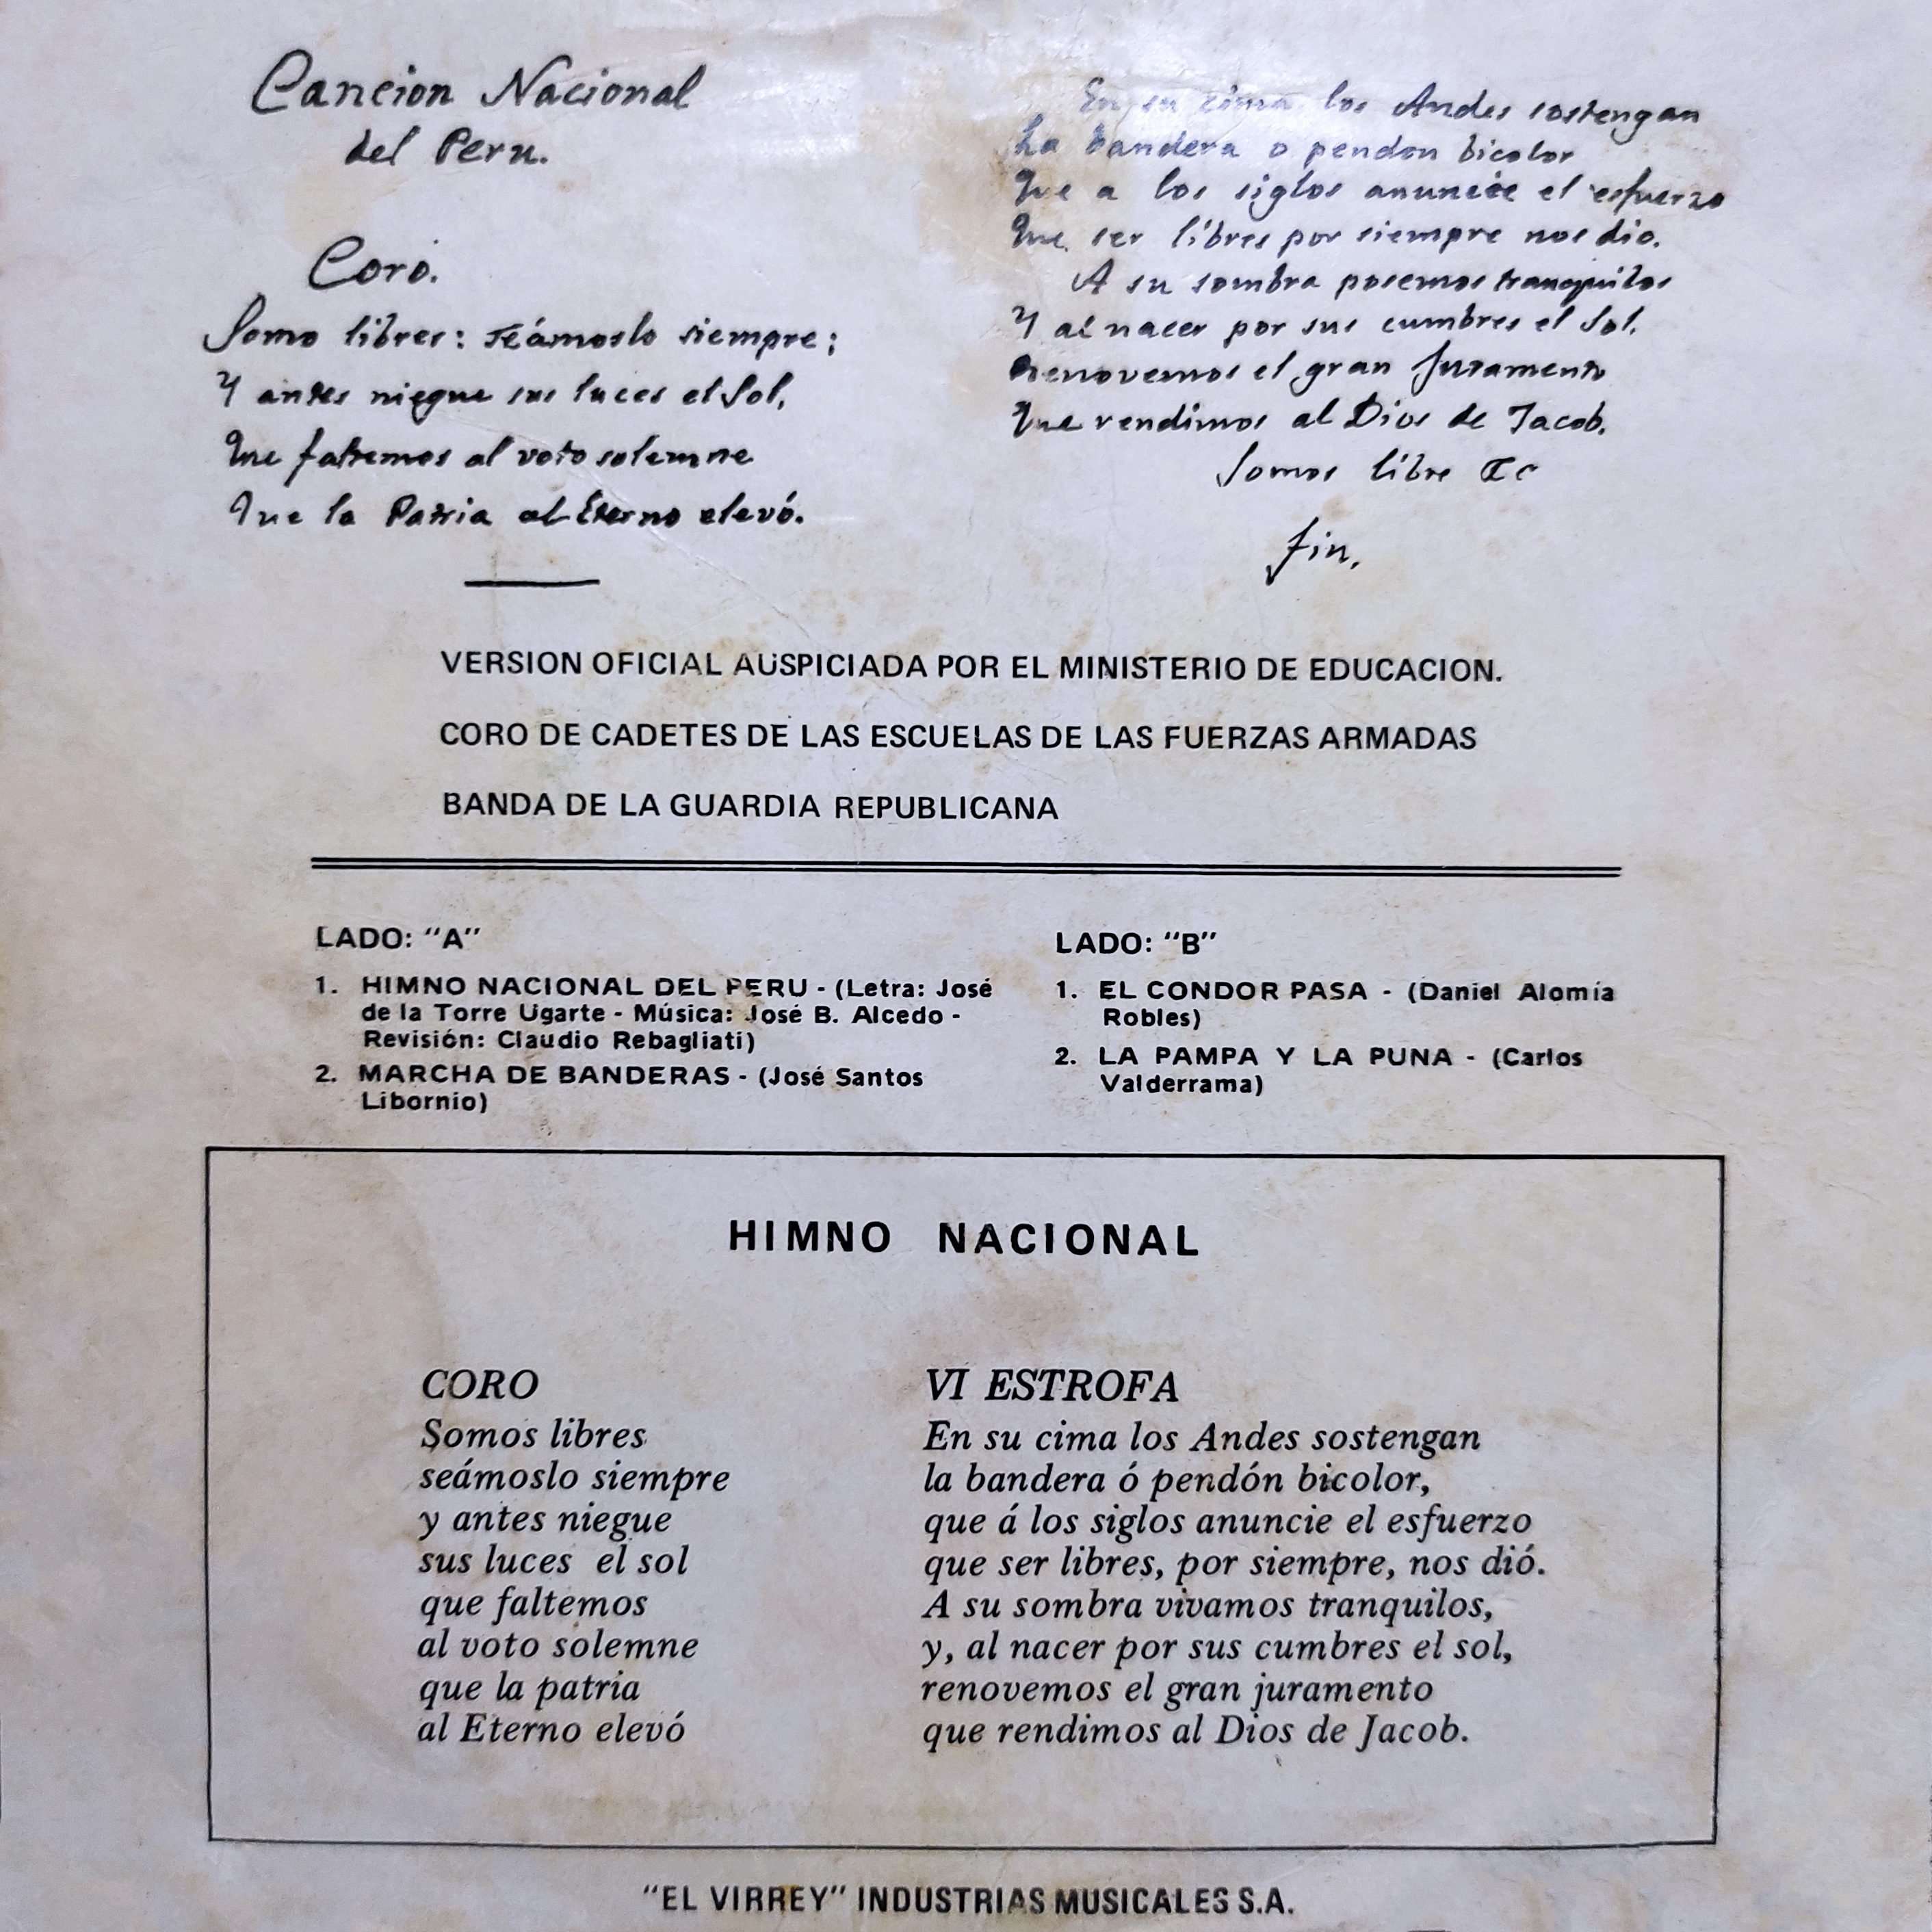 Cancion Nacional
del Peru.
Coro.
Somo libres: seámoslo siempre;
Y antes niegue sus luces el Sol,
Que faltemos al voto solemne
Que la Patria al Eterno elevó.
En su cima los Andes sostengan
La bandera o pendon bicolor
Que a los siglos anuncie el esfuerzo
Que ser libres por siempre nos dio.
A su sombra posemos tranquilos
Y al nacer por sus cumbres el Sol,
Renovemos el gran Juramento
Que rendimos al Dios de Jacob.
Somos libre &c
fin.
VERSION OFICIAL AUSPICIADA POR EL MINISTERIO DE EDUCACION.
CORO DE CADETES DE LAS ESCUELAS DE LAS FUERZAS ARMADAS
BANDA DE LA GUARDIA REPUBLICANA
LADO: "A"
1. HIMNO NACIONAL DEL PERU - (Letra: José
de la Torre Ugarte - Música: José B. Alcedo -
Revisión: Claudio Rebagliati)
2. MARCHA DE BANDERAS - (José Santos
Libornio)
LADO: "B"
1. EL CONDOR PASA - (Daniel Alomía
Robles)
2. LA PAMPA Y LA PUNA - (Carlos
Valderrama)
HIMNO NACIONAL
CORO
Somos libres
seámoslo siempre
y antes niegue
sus luces el sol
que faltemos
al voto solemne
que la patria
al Eterno elevó
VI ESTROFA
En su cima los Andes sostengan
la bandera ó pendón bicolor,
que á los siglos anuncie el esfuerzo
que ser libres, por siempre, nos dió.
A su sombra vivamos tranquilos,
y, al nacer por sus cumbres el sol,
renovemos el gran juramento
que rendimos al Dios de Jacob.
"EL VIRREY" INDUSTRIAS MUSICALES S.A.